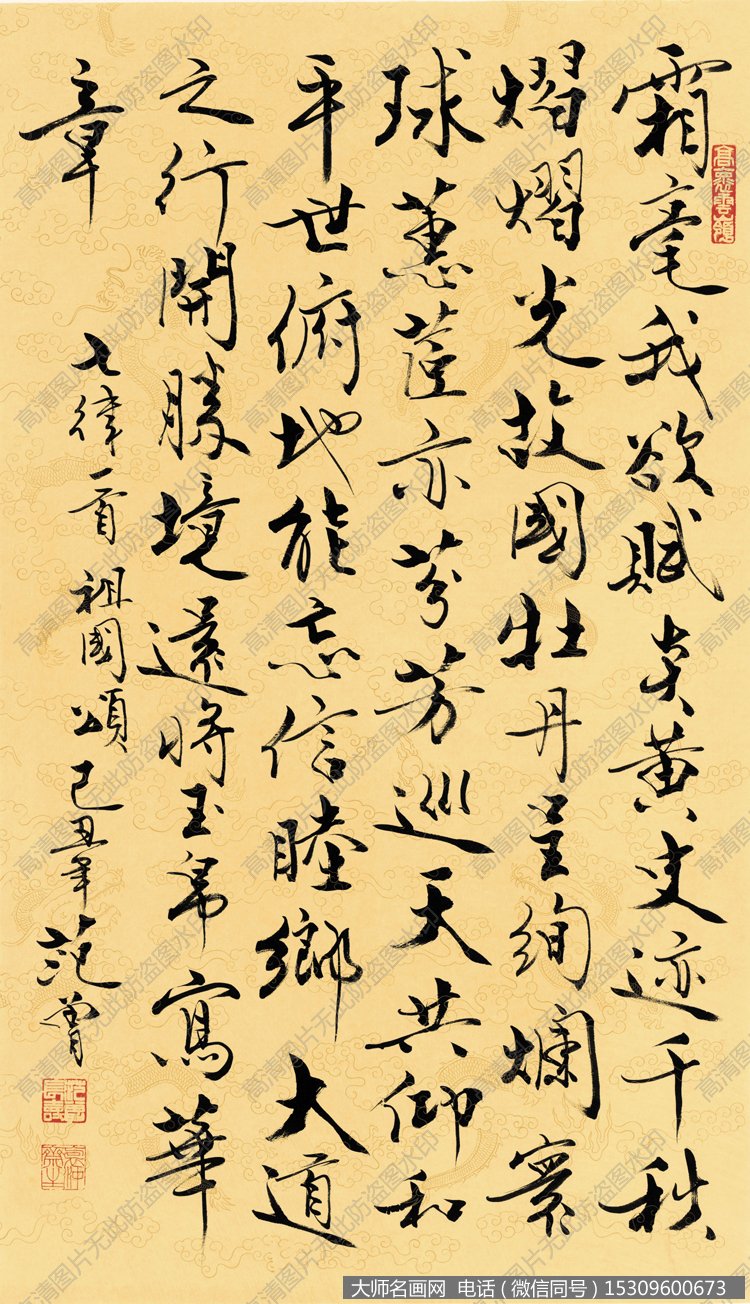 霜毫我欲賦炎黄史迹千秋
熠熠光故國牡丹呈絢爛寰
球蕙茝亦芬芳巡天共仰和
平世俯地能忘信睦鄉大道
之行開勝境還將玉帛寫華
章
七律一首祖國頌己丑年范曾
高清图片无此防盗图水印
大师名画网 电话（微信同号）15309600673